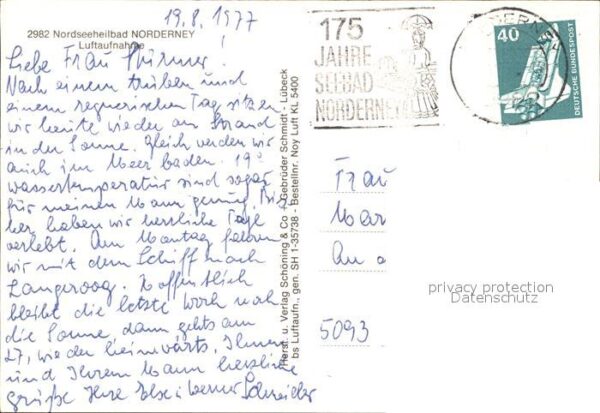 19.8.1977
2982 Nordseeheilbad NORDERNEY
Luftaufnahme
Liebe Frau Stürmer!
Nach einem trüben und
einem regnerischen Tag sitzen
wir heute wieder am Strand
in der Sonne. Gleich werden wir
auch im Meer baden. 19°
wassertemperatur sind sogar
für meinen Mann genug. Bis-
her haben wir herrliche Tage
verlebt. Am Montag fahren
wir mit dem Schiff nach
Langeroog. Hoffentlich
bleibt die letzte Woch noch
die Sonne, dann gehts am
27. wieder heimwärts. Ihnen
und Ihrem Mann herzliche
grüße Ihre Else u. Werner Schneider
Herst. u. Verlag Schöning & Co + Gebrüder Schmidt - Lübeck
bs Luftaufn., gen. SH 1-35738 - Bestellnr. Noy Luft KL 5400
175
JAHRE
SEEBAD
NORDERNEY
40
DEUTSCHE BUNDESPOST
Frau
Mar
An d
5093
privacy protection
Datenschutz